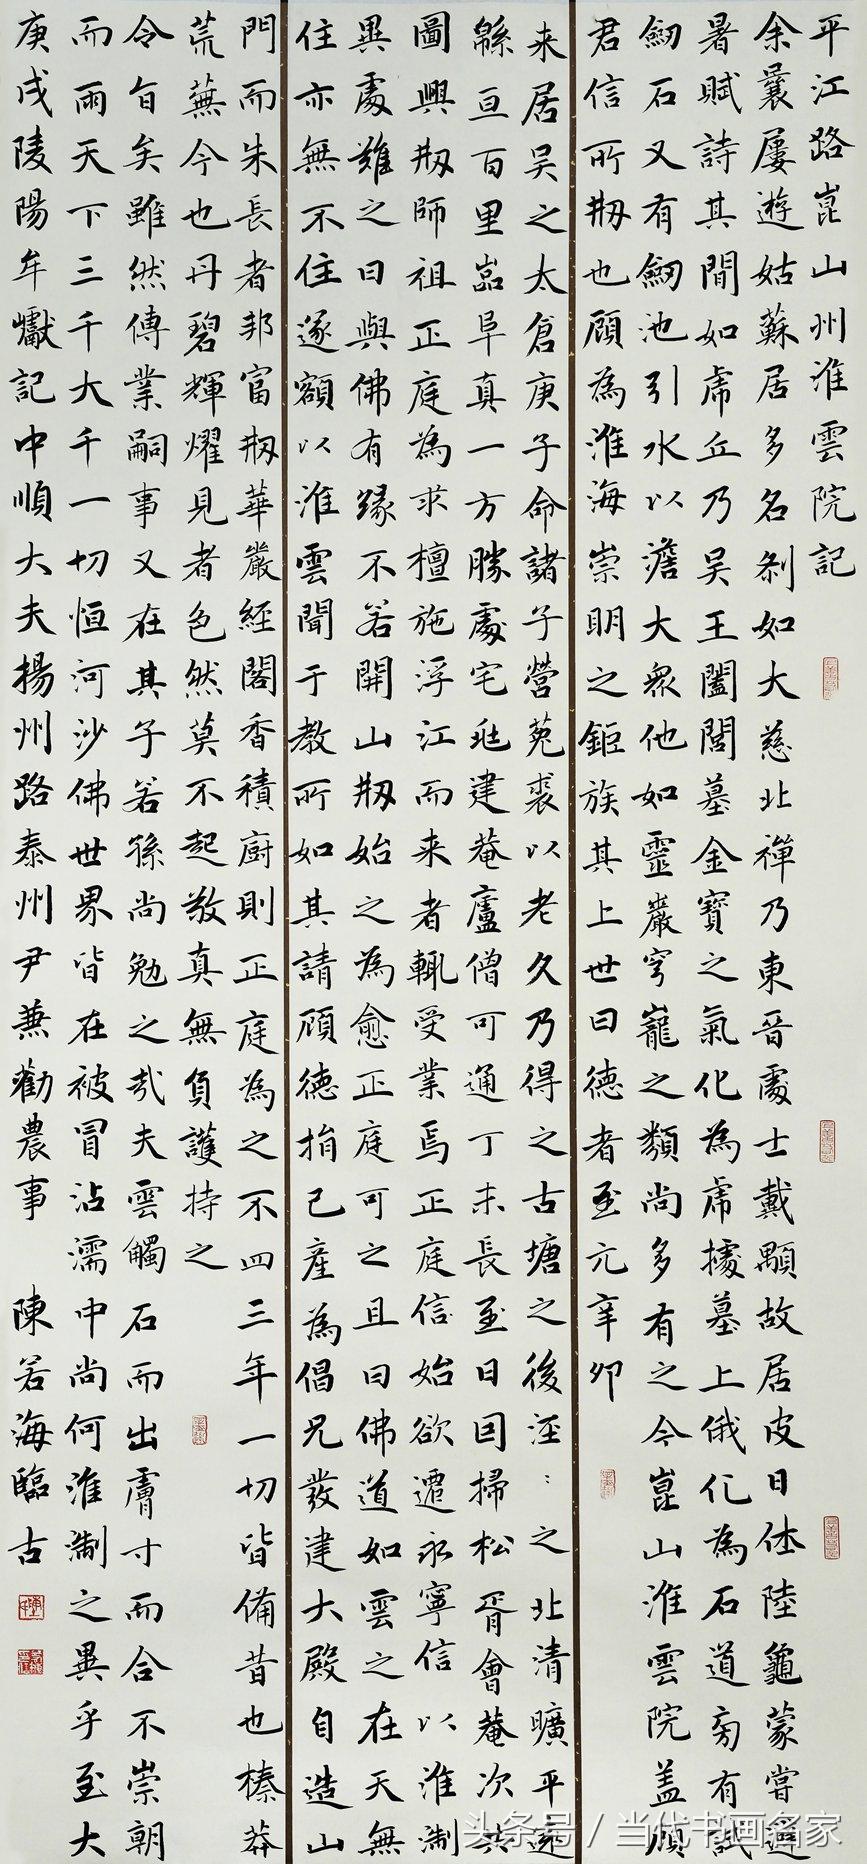 平江路崑山州淮雲院記
余曩屢遊姑蘇居多名剎如大慈北禪乃東晉處士戴顒故居皮日休陸龜蒙嘗避
暑賦詩其間如虎丘乃吳王闔閭墓金寶之氣化為虎據墓上俄化為石道旁有試
劒石又有劒池引水以澹大眾他如靈巖穹窿之類尚多有之今崑山淮雲院蓋顧
君信所刱也顧為淮海崇明之鉅族其上世曰德者至元辛卯
来居吳之太倉庚子命諸子營菟裘以老久乃得之古塘之後涇涇之北清曠平遠
緜亘百里嵓阜真一方勝處宅兆建菴廬僧可通丁未長至日因掃松胥會菴次共
圖興刱師祖正庭為求檀施浮江而来者輒受業焉正庭信始欲遷永寧信以淮淛
異處難之曰與佛有緣不若開山刱始之為愈正庭可之且曰佛道如雲之在天無
住亦無不住遂額以淮雲聞于教所如其請顧德捐己產為倡兄發建大殿自造山
門而朱長者邦富刱華嚴經閣香積廚則正庭為之不四三年一切皆備昔也榛莽
荒蕪今也丹碧輝燿見者色然莫不起敬真無負護持之
令旨矣雖然傳業嗣事又在其子若孫尚勉之哉夫雲觸石而出膚寸而合不崇朝
而雨天下三千大千一切恒河沙佛世界皆在被冒沾濡中尚何淮淛之異乎至大
庚戌陵陽牟巘記中順大夫揚州路泰州尹蕪勸農事 陳若海臨古
头条号 / 当代书画名家